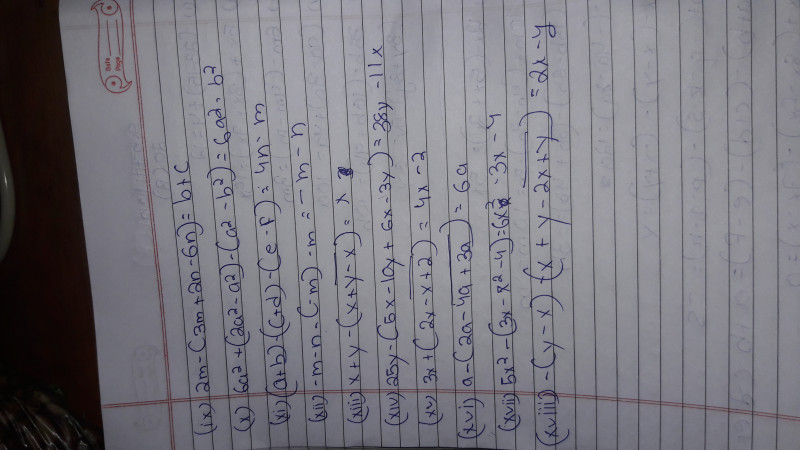 Date
Page
(ix) 2m-(3m+2n-6n)=b+c
(x) 6a²+(2a²-a²)-(a²-b²)=6a²+b²
(xi) (a+b)-(c+d)-(e-f)=4n-m
(xii) -m-n-(-m)-m=-m-n
(xiii) x+y-(x+y-x)=x
(xiv) 25y-(5x-10y+6x-3y)=38y-11x
(xv) 3x+(2x-x+2)=4x-2
(xvi) a-(2a-4a+3a)=6a
(xvii) 5x²-(3x-x²-4)=6x²-3x-4
(xviii) -(y-x)-(x+y-2x+y)=2x-y